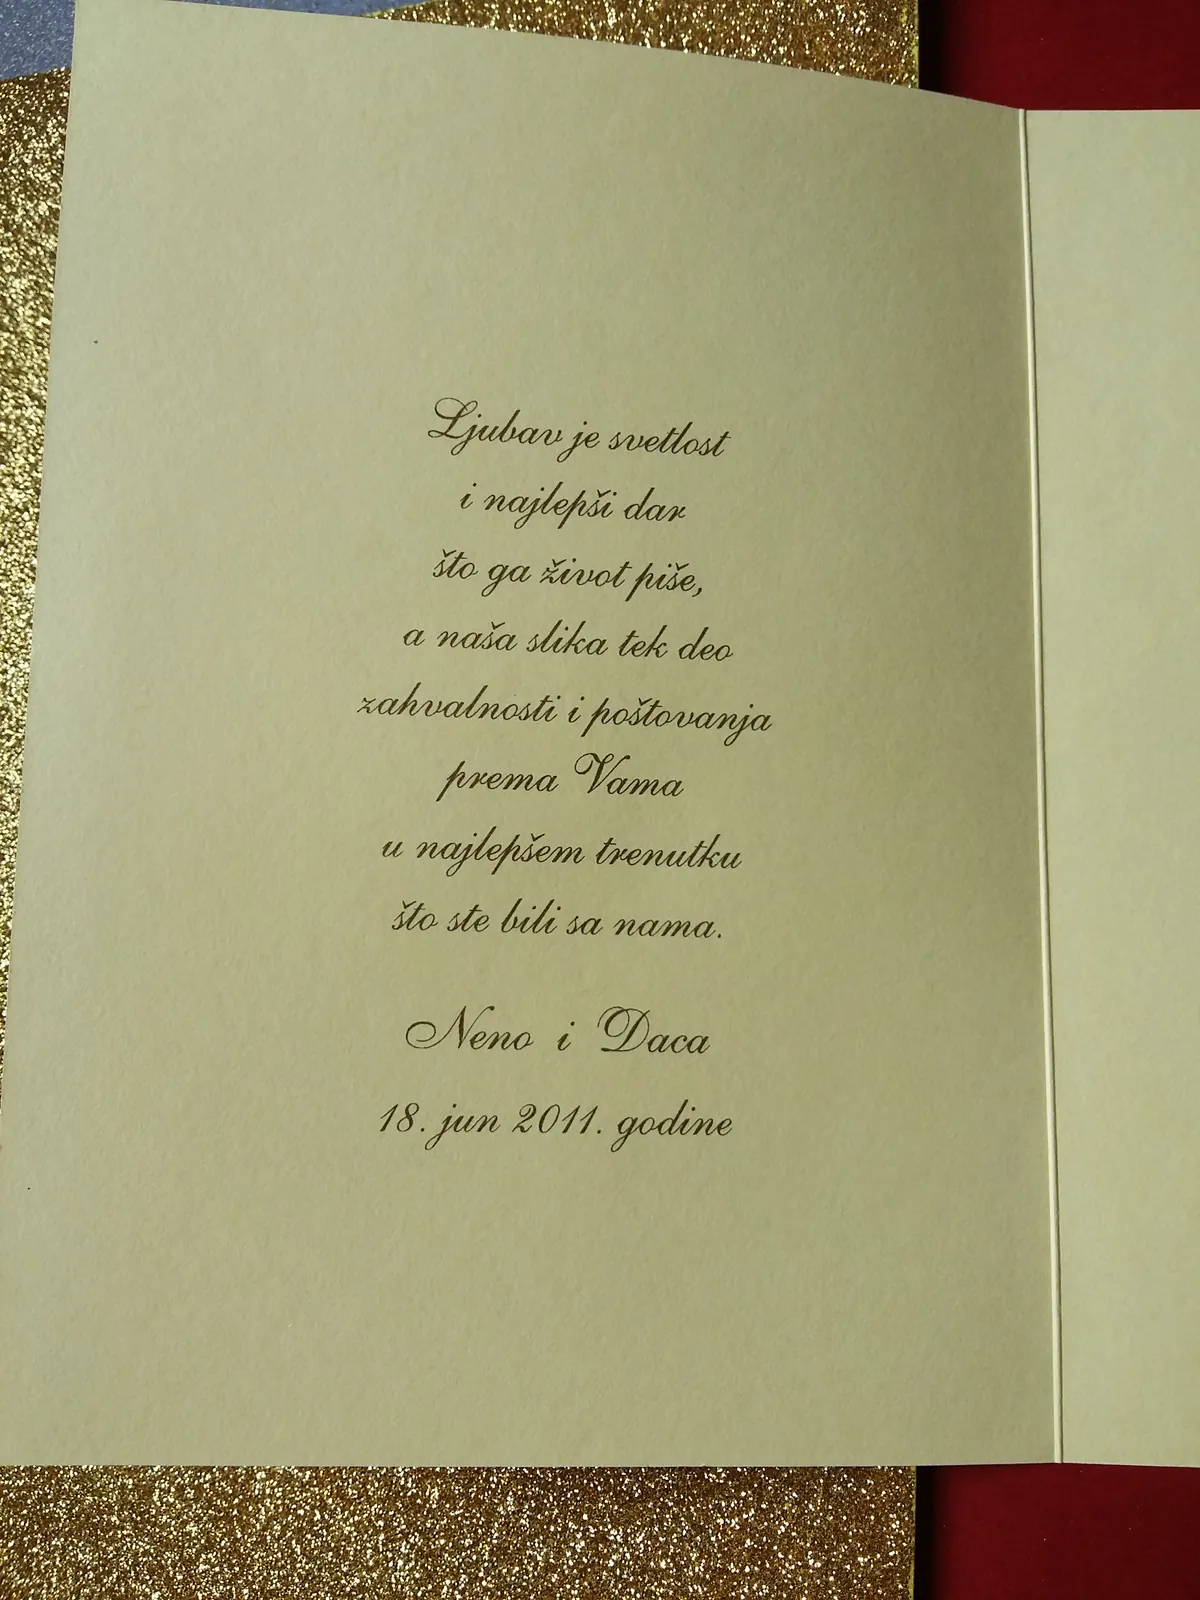 Ljubav je svetlost
i najlepši dar
što ga život piše,
a naša slika tek deo
zahvalnosti i poštovanja
prema Vama
u najlepšem trenutku
što ste bili sa nama.
Neno i Daca
18. jun 2011. godine